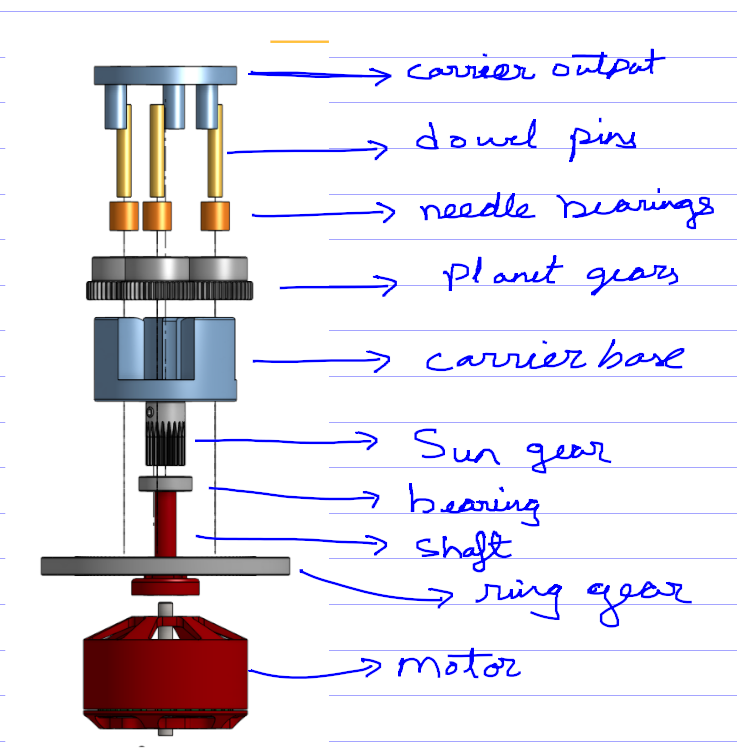 carrier output
dowel pins
needle bearings
planet gears
carrier base
Sun gear
bearing
shaft
ring gear
motor